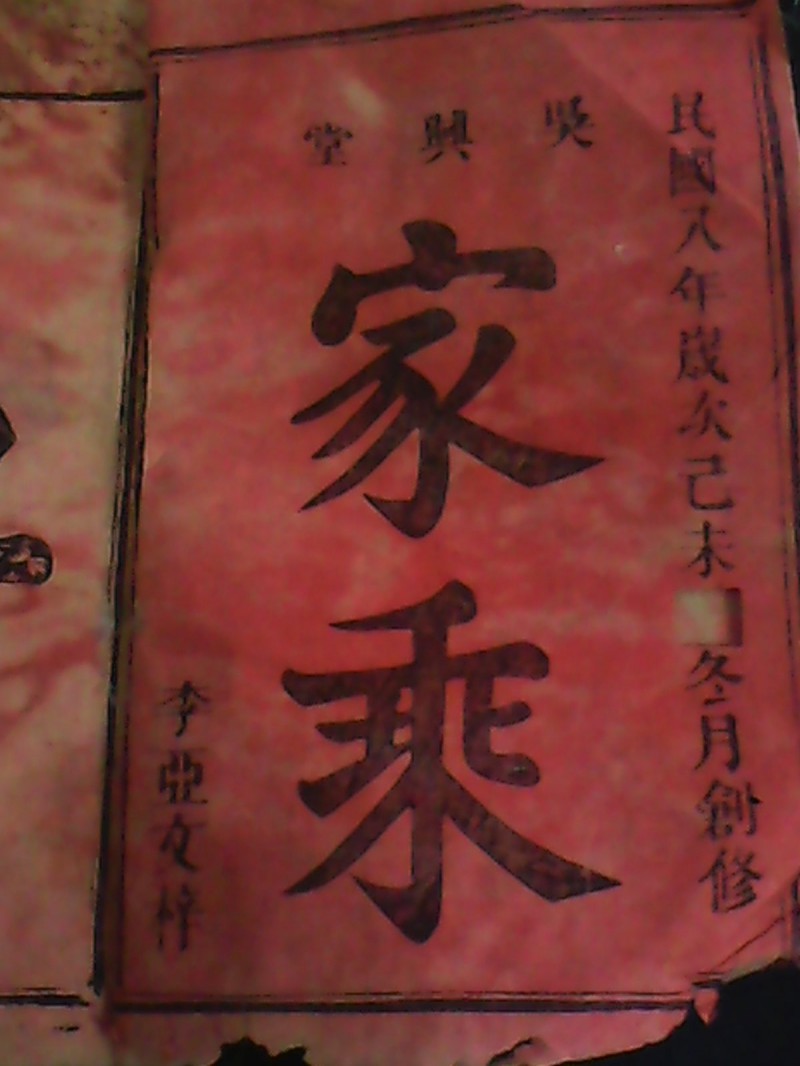 民國八年歲次己未冬月創修
吳興堂
家乘
李亞文梓